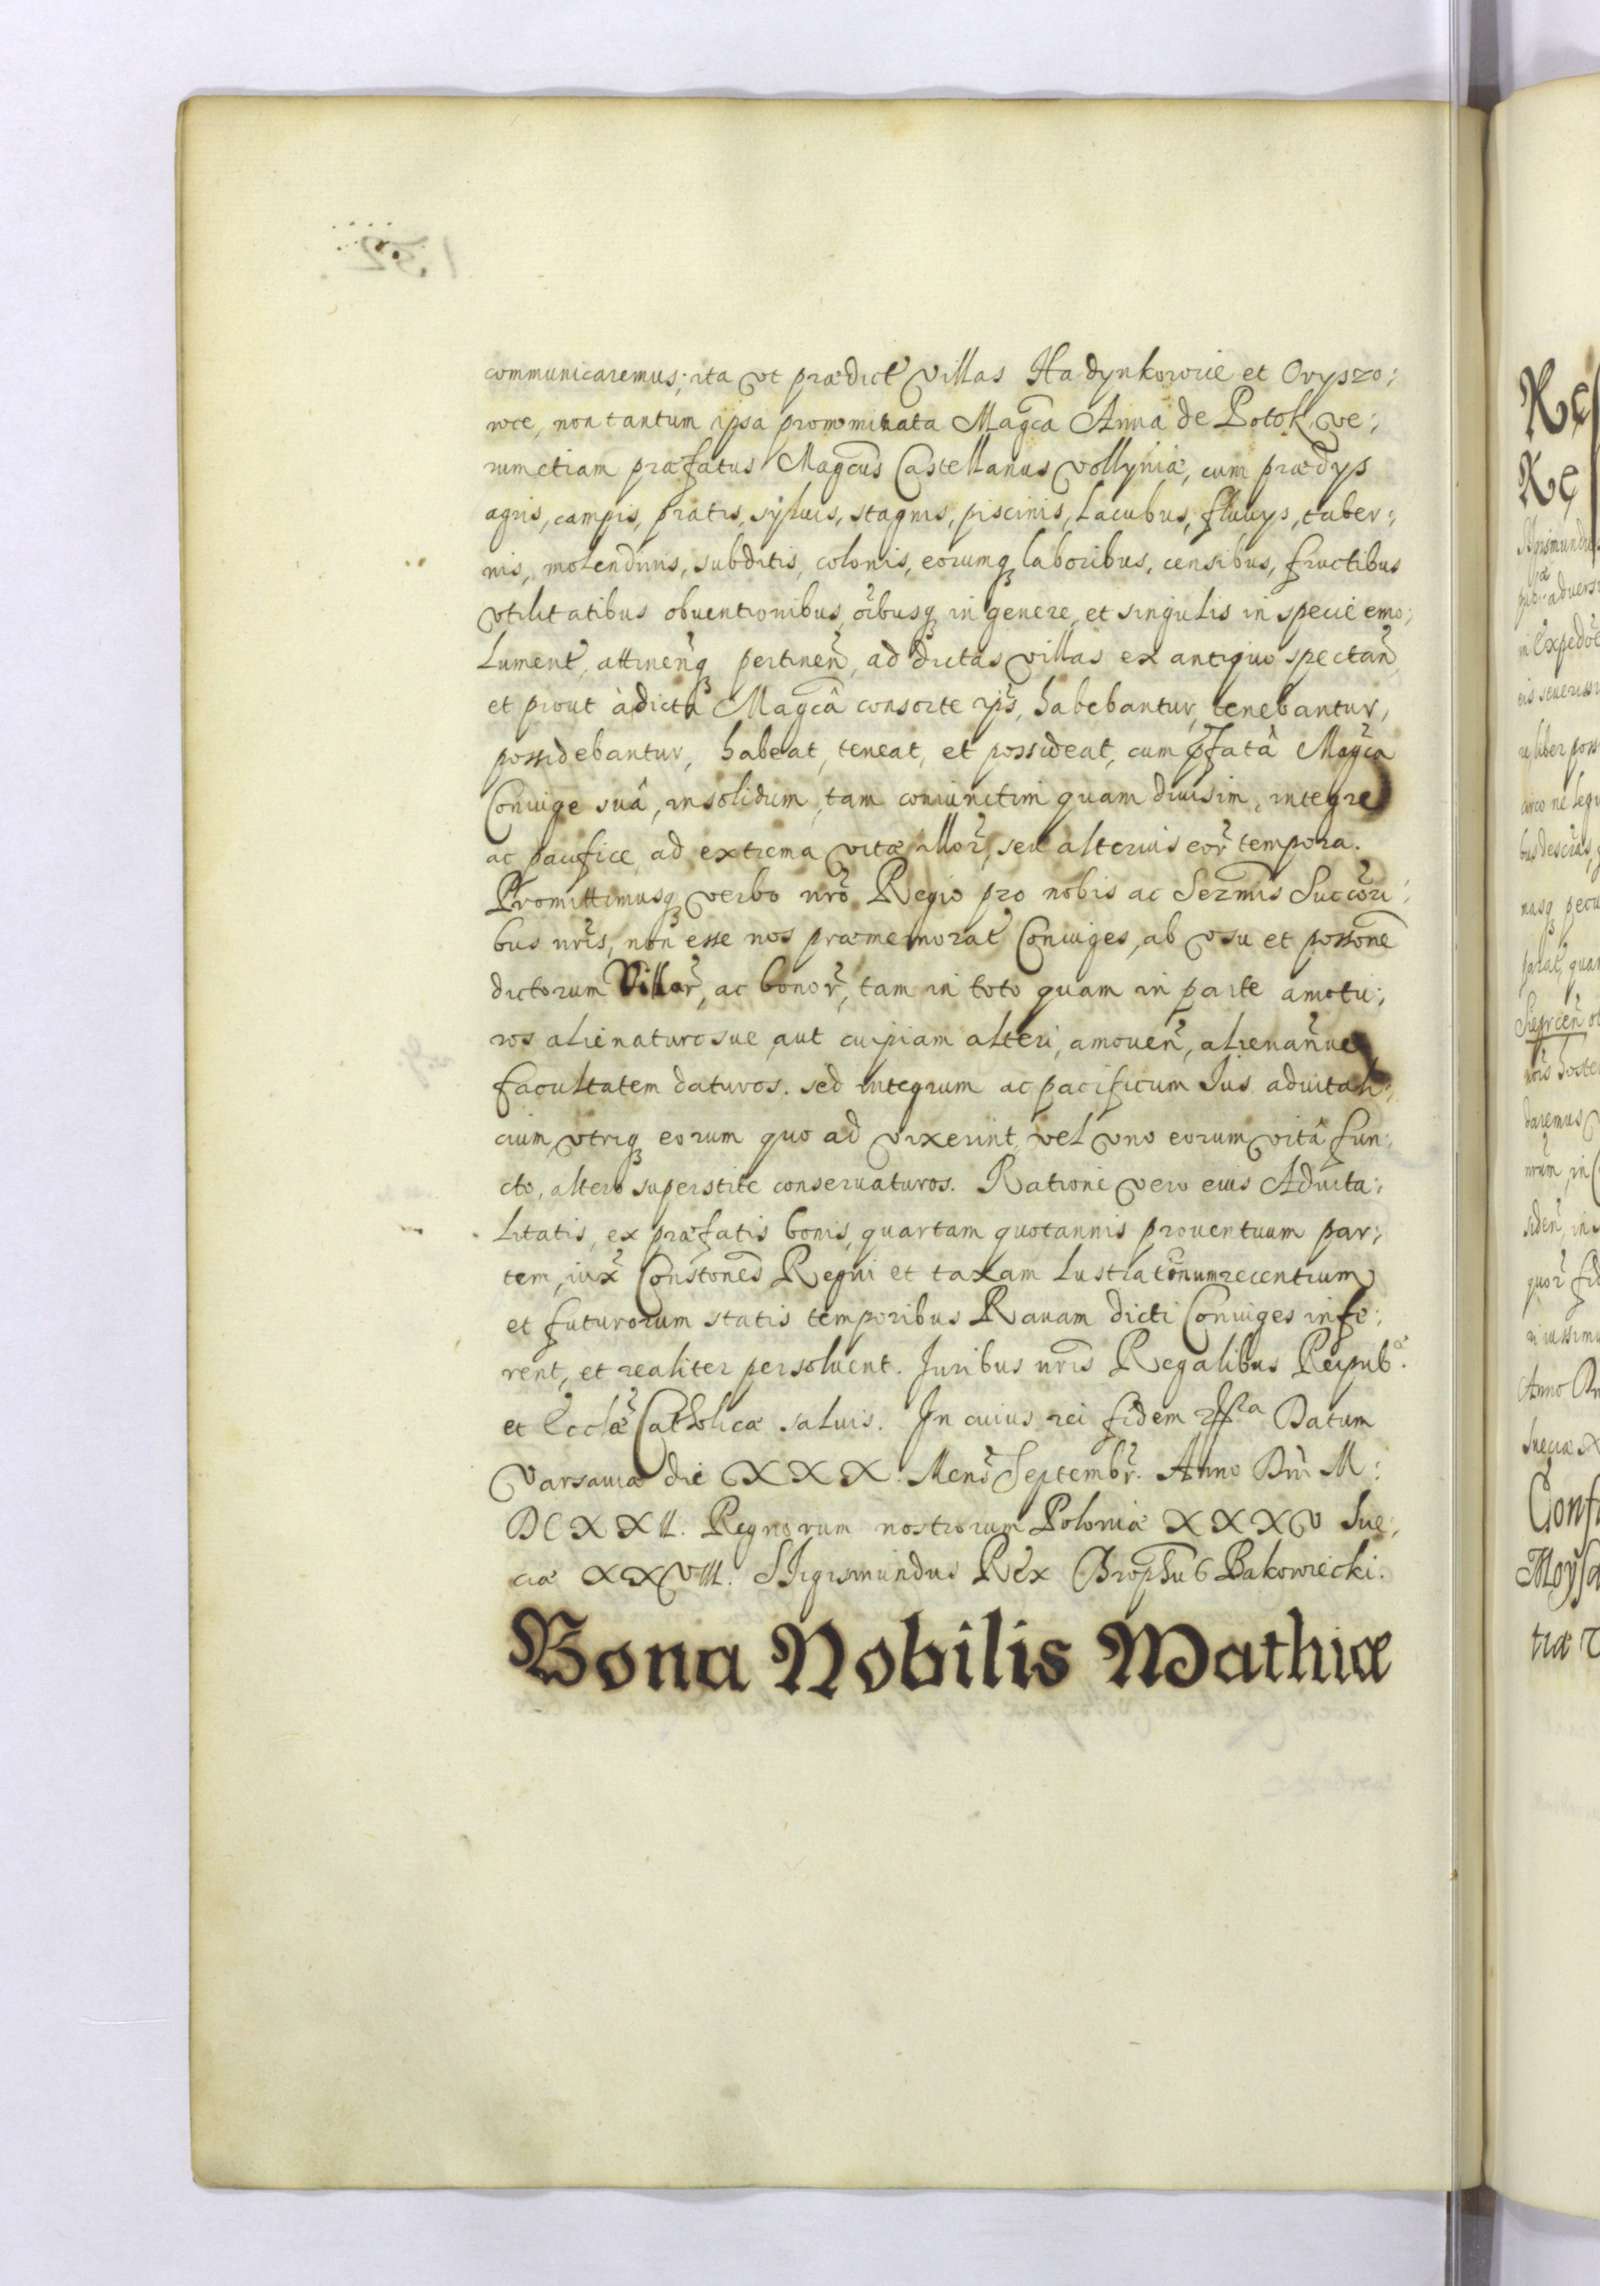 communicaremus; ita vt prædict villas Hadynkowcie et Oryszo:
wce, non tantum ipsa prnominata Magca Anna de Potok, ve:
rumetiam præfatus Magcus Castellanus vollyniæ, cum prædys
agris, campis, pratis, syluis, stagnis, piscinis, Lacubus, fluuys, taber:
nis, molendinis, subditis, colonis, eorumq laboribus, censibus, fructibus
vtilitatibus obuentionibus, oibusq in genere, et singulis in specie emo:
Lument, attinenq pertinen, ad dictas villas ex antiquo spectan,
et prout à dicta Magcâ consorte ips, habebantur, tenebantur,
possidebantur, habeat, teneat, et possideat, cum pfatâ Magca
Coniuge suâ, insolidum, tam coniunctim quam diuisim, integre
ac pacifice, ad extrema vitæ illor, seu alterius eor tempora.
Promittimusq verbo nro Regio pro nobis ac Sermis Succori:
bus nris, non esse nos præmemorat Coniuges, ab vsu et possone
dictorum Villar, ac bonor, tam in toto quam in parte amotu:
ros alienaturosue, aut cuipiam alteri, amouen, alienanue
facultatem daturos. sed integrum ac pacificum Ius aduitali:
cium, vtriq eorum quo ad vixerint, vel vno eorum vitâ fun:
cto, altero superstite conseruaturos. Ratione vero eius Aduita:
Litatis, ex præfatis bonis, quartam quotannis prouentuum par:
tem, iux Constones Regni et taxam Lustratonum recentium
et futurorum statis temporibus Rauam dicti Coniuges infe:
rent, et realiter persoluent. Juribus nris Regalibus Reipub.æ
et Ecclæ Catholicæ saluis. In cuius rei fidem Datum
Varsauiæ die XXX. Mens Septembr. Anno Dni M:
DCXXII. Regnorum nostrorum Poloniæ XXXV Sue:
ciæ XXVIII. Sigismundus Rex Bakowiecki.
Bona Nobilis Mathiæ